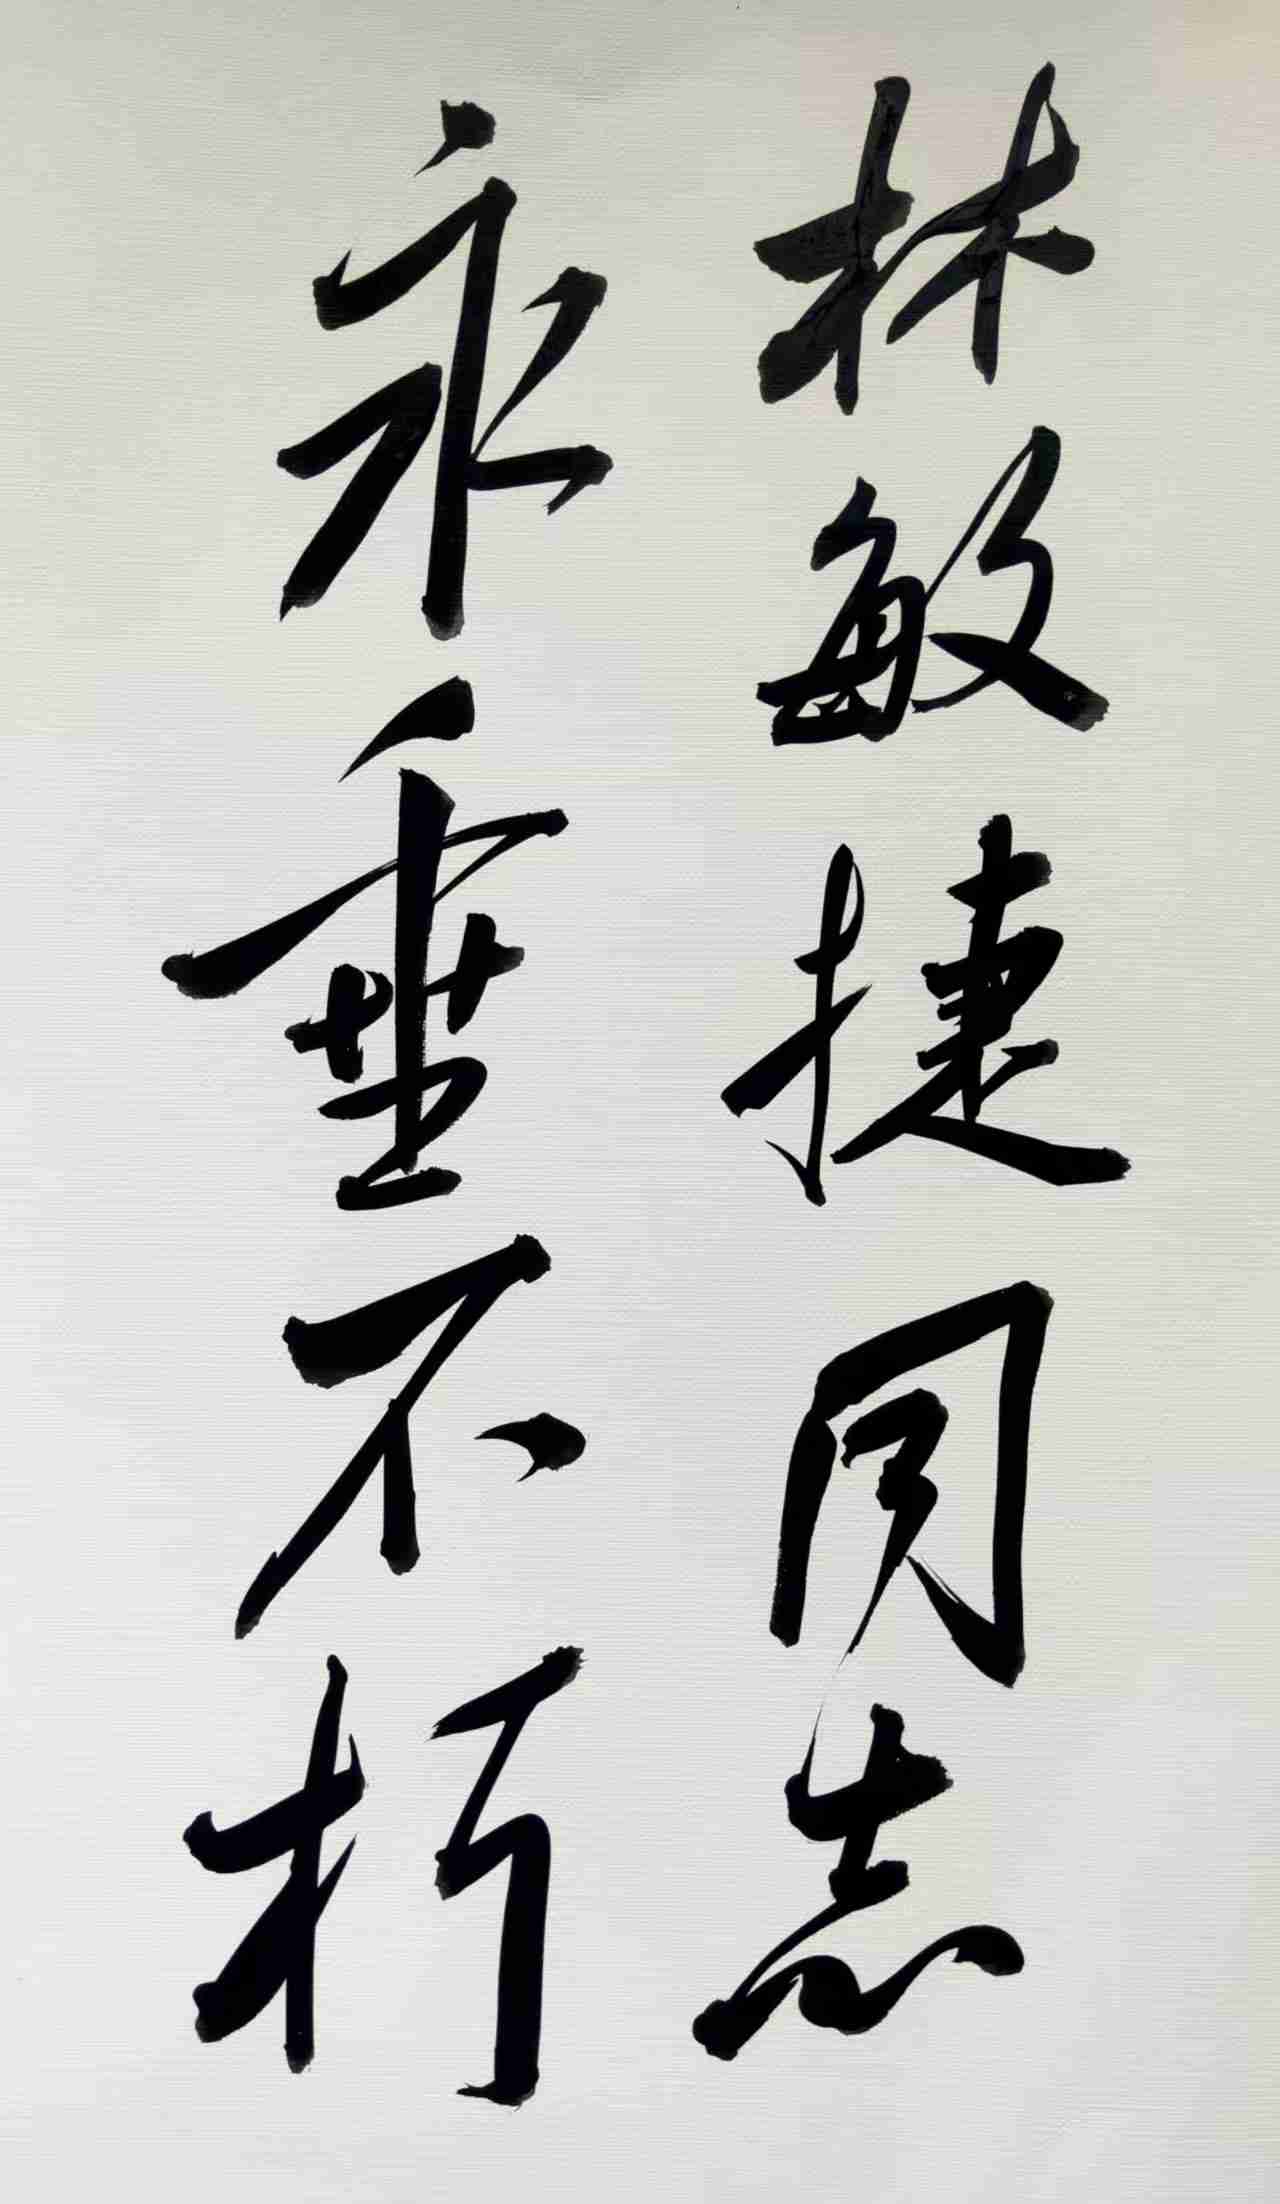 林敏捷同志
永垂不朽